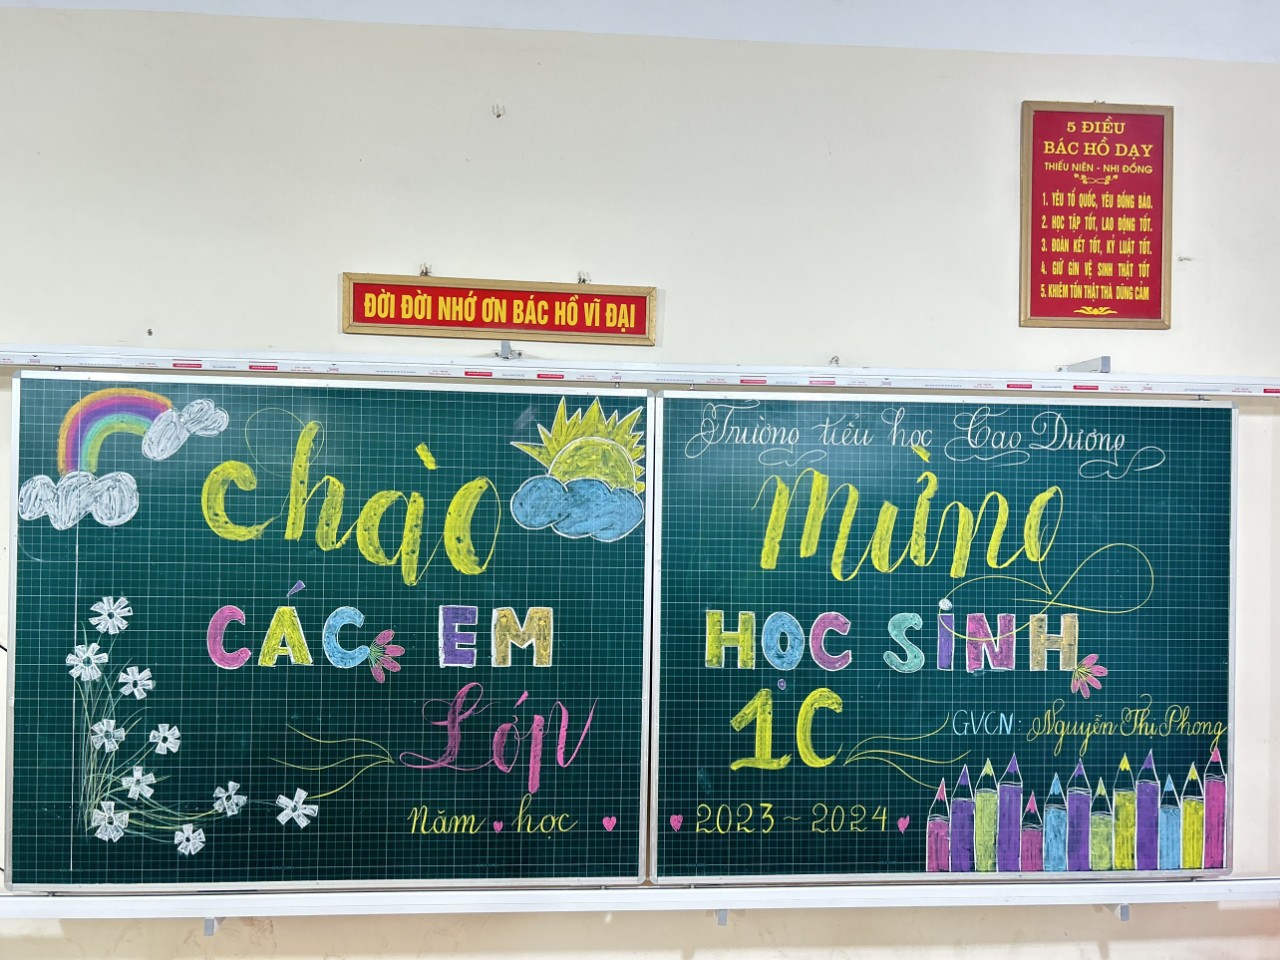 5 ĐIỀU
BÁC HỒ DẠY
THIẾU NIÊN - NHI ĐỒNG
1. YÊU TỔ QUỐC, YÊU ĐỒNG BÀO.
2. HỌC TẬP TỐT, LAO ĐỘNG TỐT.
3. ĐOÀN KẾT TỐT, KỶ LUẬT TỐT.
4. GIỮ GÌN VỆ SINH THẬT TỐT
5. KHIÊM TỐN THẬT THÀ DŨNG CẢM
ĐỜI ĐỜI NHỚ ƠN BÁC HỒ VĨ ĐẠI
Trường tiểu học Cao Dương
Chào mừng
CÁC EM HỌC SINH
Lớp 1C
GVCN: Nguyễn Thị Phong
Năm học 2023 ~ 2024